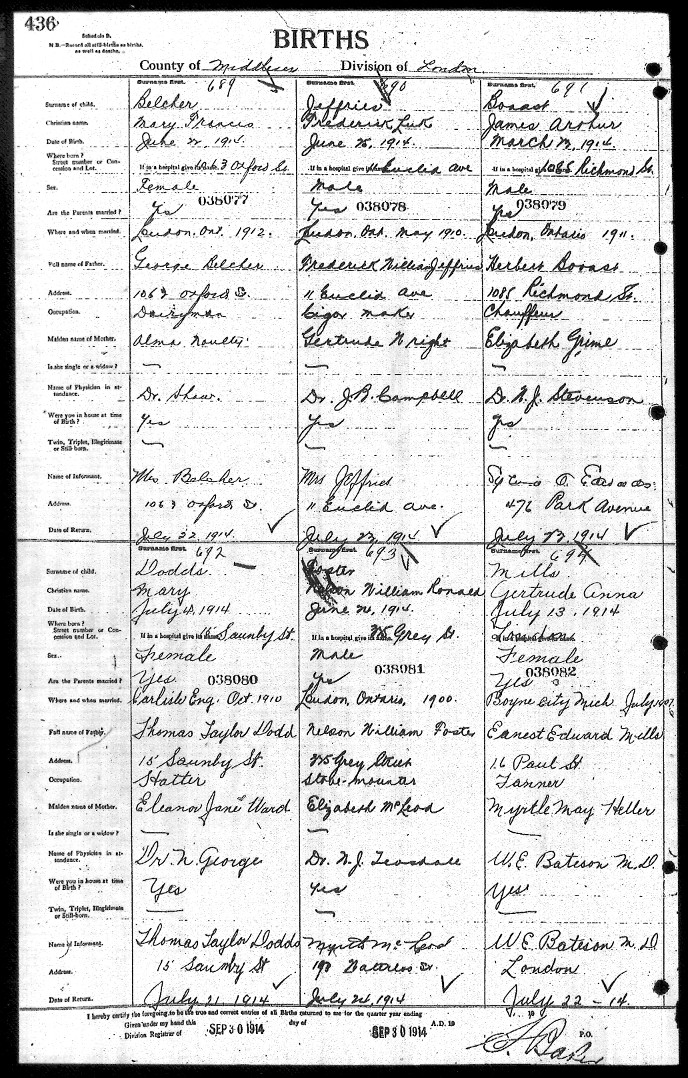 436
Schedule D.
N.B.—Record all still-births as births, as well as deaths.
BIRTHS
County of Middlesex Division of London
Surname first. 689 Surname first. 690 Surname first. 691
Surname of child. Belcher Jeffries Bovast
Christian name. Mary Francis Frederick Luk James Arthur
Date of Birth. June 22, 1914. June 25, 1914. March 23, 1914.
Where born? Street number or Concession and Lot. If in a hospital give its name 1063 Oxford St. If in a hospital give its name 11 Euclid Ave If in a hospital give its name 1085 Richmond St.
Sex. Female Male Male
038077 038078 038079
Are the Parents married? Yes Yes Yes
Where and when married. London, Ont. 1912. London, Ont. May 1910. London, Ontario 1911.
Full name of Father. George Belcher Frederick William Jeffries Herbert Bovast
Address. 1063 Oxford St. 11 Euclid Ave 1085 Richmond St.
Occupation. Dairyman Cigar maker Chauffeur
Maiden name of Mother. Alma Gertrude Wright Elizabeth Grime
Is she single or a widow? — — —
Name of Physician in attendance. Dr. Shaw. Dr. J.B. Campbell Dr. W.J. Stevenson
Were you in house at time of Birth? Yes Yes Yes
Twin, Triplet, Illegitimate or Still-born. — — —
Name of Informant. Mrs. Belcher Mrs Jeffries
Address. 1063 Oxford St. 11 Euclid Ave. 476 Park Avenue
Date of Return. July 22, 1914. July 23, 1914 July 23, 1914
Surname first. 692 Surname first. 693 Surname first. 694
Surname of child. Dodds Foster Mills
Christian name. Mary Nelson William Ronald Gertrude Anna
Date of Birth. July 4, 1914 June 26, 1914. July 13, 1914
Where born? Street number or Concession and Lot. If in a hospital give its name 15 Saunby St. If in a hospital give its name 235 Grey St. London
Sex. Female Male Female
038080 038081 038082
Are the Parents married? Yes Yes Yes
Where and when married. Carlisle Eng. Oct. 1910 London, Ontario, 1900. Boyne City Mich July
Full name of Father. Thomas Taylor Dodd Nelson William Foster Earnest Edward Mills
Address. 15 Saunby St. 235 Grey Street 16 Paul St.
Occupation. Hatter Stove-mounter Tanner
Maiden name of Mother. Eleanor Jane Ward Elizabeth McLeod Myrtle May Heller
Is she single or a widow? — — —
Name of Physician in attendance. Dr. N. George Dr. W.J. Teasdale W.E. Bateson M.D.
Were you in house at time of Birth? Yes Yes Yes
Twin, Triplet, Illegitimate or Still-born. — — —
Name of Informant. Thomas Taylor Dodds McLeod W.E. Bateson M.D
Address. 15 Saunby St St. London
Date of Return. July 21, 1914 July 24, 1914 July 22 - 14.
I hereby certify the foregoing to be the true and correct entries of all Births returned to me for the quarter year ending 19
Given under my hand this SEP 30 1914 day of SEP 30 1914 A.D. 19
Division Registrar of Baker P.O.